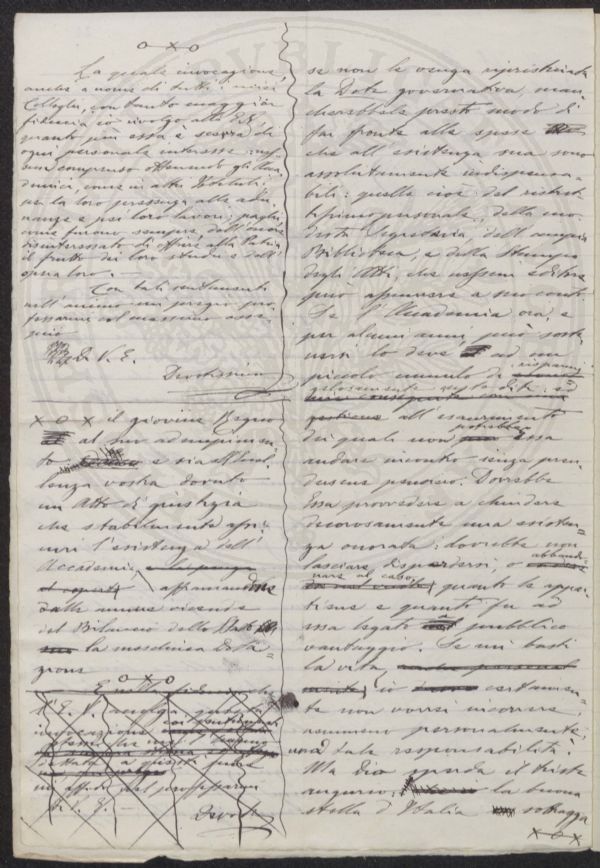 o x o
La quale invocazione
anche a nome di tutti i miei
Colleghi, con tanto maggior
fidanza io rivolgo all' E. V.
quanto più essa è scevra da
ogni personale interesse: nes-
sun compenso ottenendo gli Acca-
demici, come in altri Istituti
per la loro presenza alle adu-
nanze e pei loro lavori; paghi
come furono sempre dell'onore
disinteressato di offrire alla Patria
il frutto dei loro studi e dell'
opera loro.
Con tali sentimenti
nell'animo mi pregio pro-
fessarmi col massimo osse-
quio
Di V. E.
Devotissimo
x o x il giovine Regno
al suo adempimen-
to e sia all'Eccel-
lenza vostra dovuto
un Atto di giustizia
che stabilmente assi-
curi l'esistenza dell'
Accademia,
affrancandone
dalle annue vicende
del Bilancio dello Stato
la meschina Dota-
zione
o x o
che
l'E. V. accolga questa
invocazione
dettato a questi
Di V. E.
Devot
se non le venga ripristinata
la Dote governativa, man-
cherebbele presto modo di
far fronte alle spese
che all' esistenza sua sono
assolutamente indispensa-
bili: quelle cioè del ristret-
tissimo personale, della mo-
desta Segreteria, dell'ampia
Biblioteca, e della Stampa
degli Atti, che nessun editore
può assumere a suo conto.
Se l'Accademia ora, e
per alcuni anni, può soste-
nersi lo deve ad un
piccolo cumulo di risparmi
gelosamente custodito: ad
all' esaurimento
dei quali non potrebbe Essa
andare incontro senza pren-
dersene pensiero. Dovrebbe
Essa provvedere a chiudere
decorosamente una esisten-
za onorata: dovrebbe non
lasciare disperdersi, o abbando-
nare al caso, quanto le appar-
tiene e quanto fu ad
essa legato a pubblico
vantaggio. Se mi basti
la vita,
io certamen-
te non vorrei incorrere,
nessuno personalmente,
tale responsabilità.
Ma Dio sperda il triste
augurio, la buona
stella d'Italia sorregga
x o x